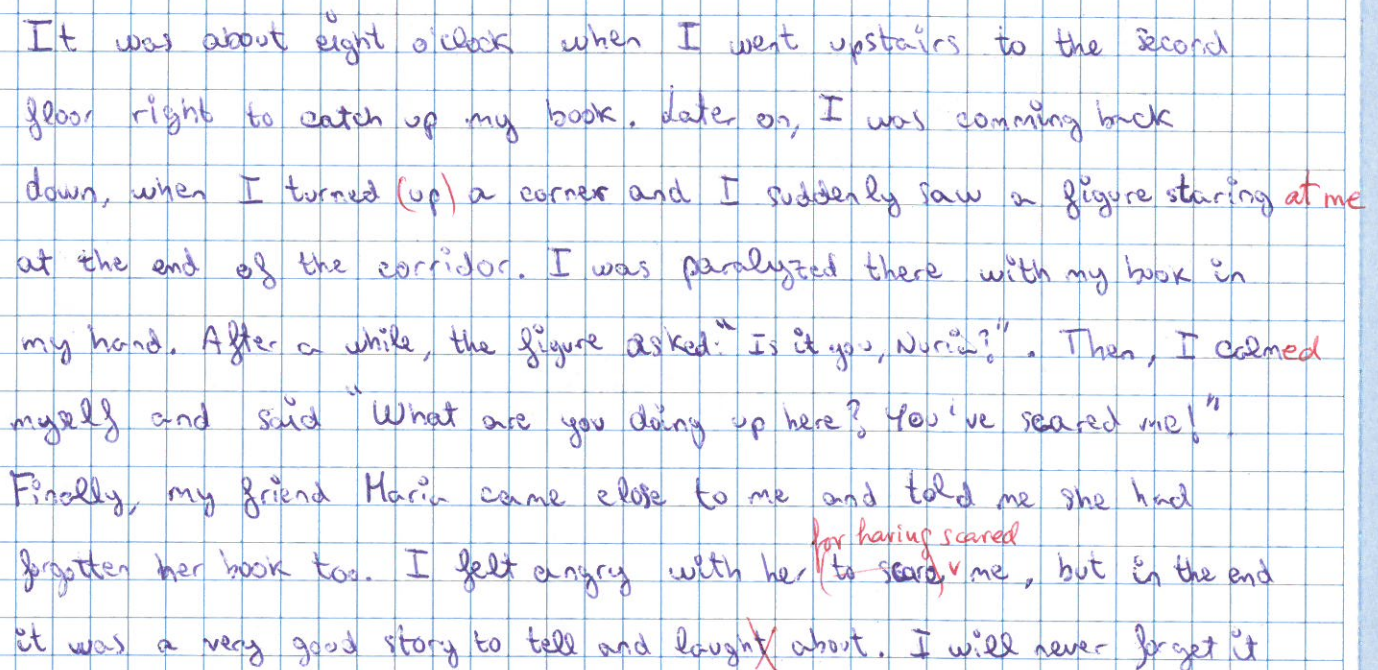 It was about eight o'clock when I went upstairs to the second
floor right to catch up my book. Later on, I was comming back
down, when I turned (up) a corner and I suddenly saw a figure staring at me
at the end of the corridor. I was paralyzed there with my book in
my hand. After a while, the figure asked: "Is it you, Nuria?". Then, I calmed
myself and said "What are you doing up here? You've scared me!"
Finally, my friend Maria came close to me and told me she had
for having scared
forgotten her book too. I felt angry with her (to scare) me, but in the end
it was a very good story to tell and laught about. I will never forget it